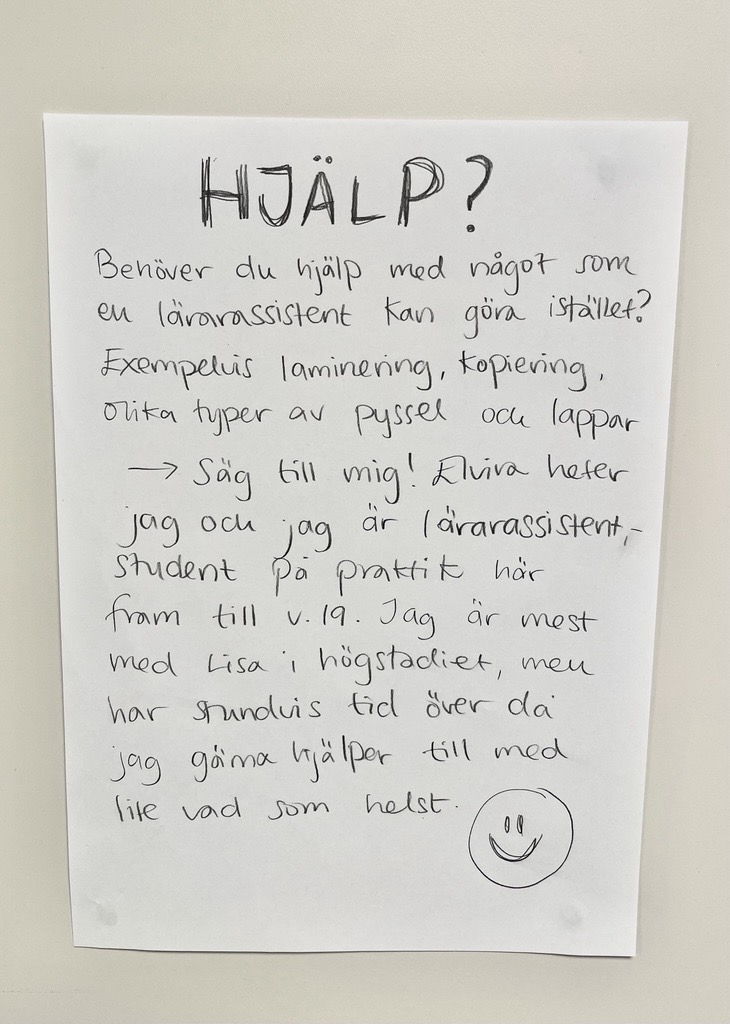 HJÄLP?
Behöver du hjälp med något som
en lärarassistent kan göra istället?
Exempelvis laminering, kopiering,
olika typer av pyssel och lappar
→ Säg till mig! Elvira heter
jag och jag är lärarassistent,-
student på praktik här
fram till v.19. Jag är mest
med Lisa i högstadiet, men
har stundvis tid över då
jag gärna hjälper till med
lite vad som helst.